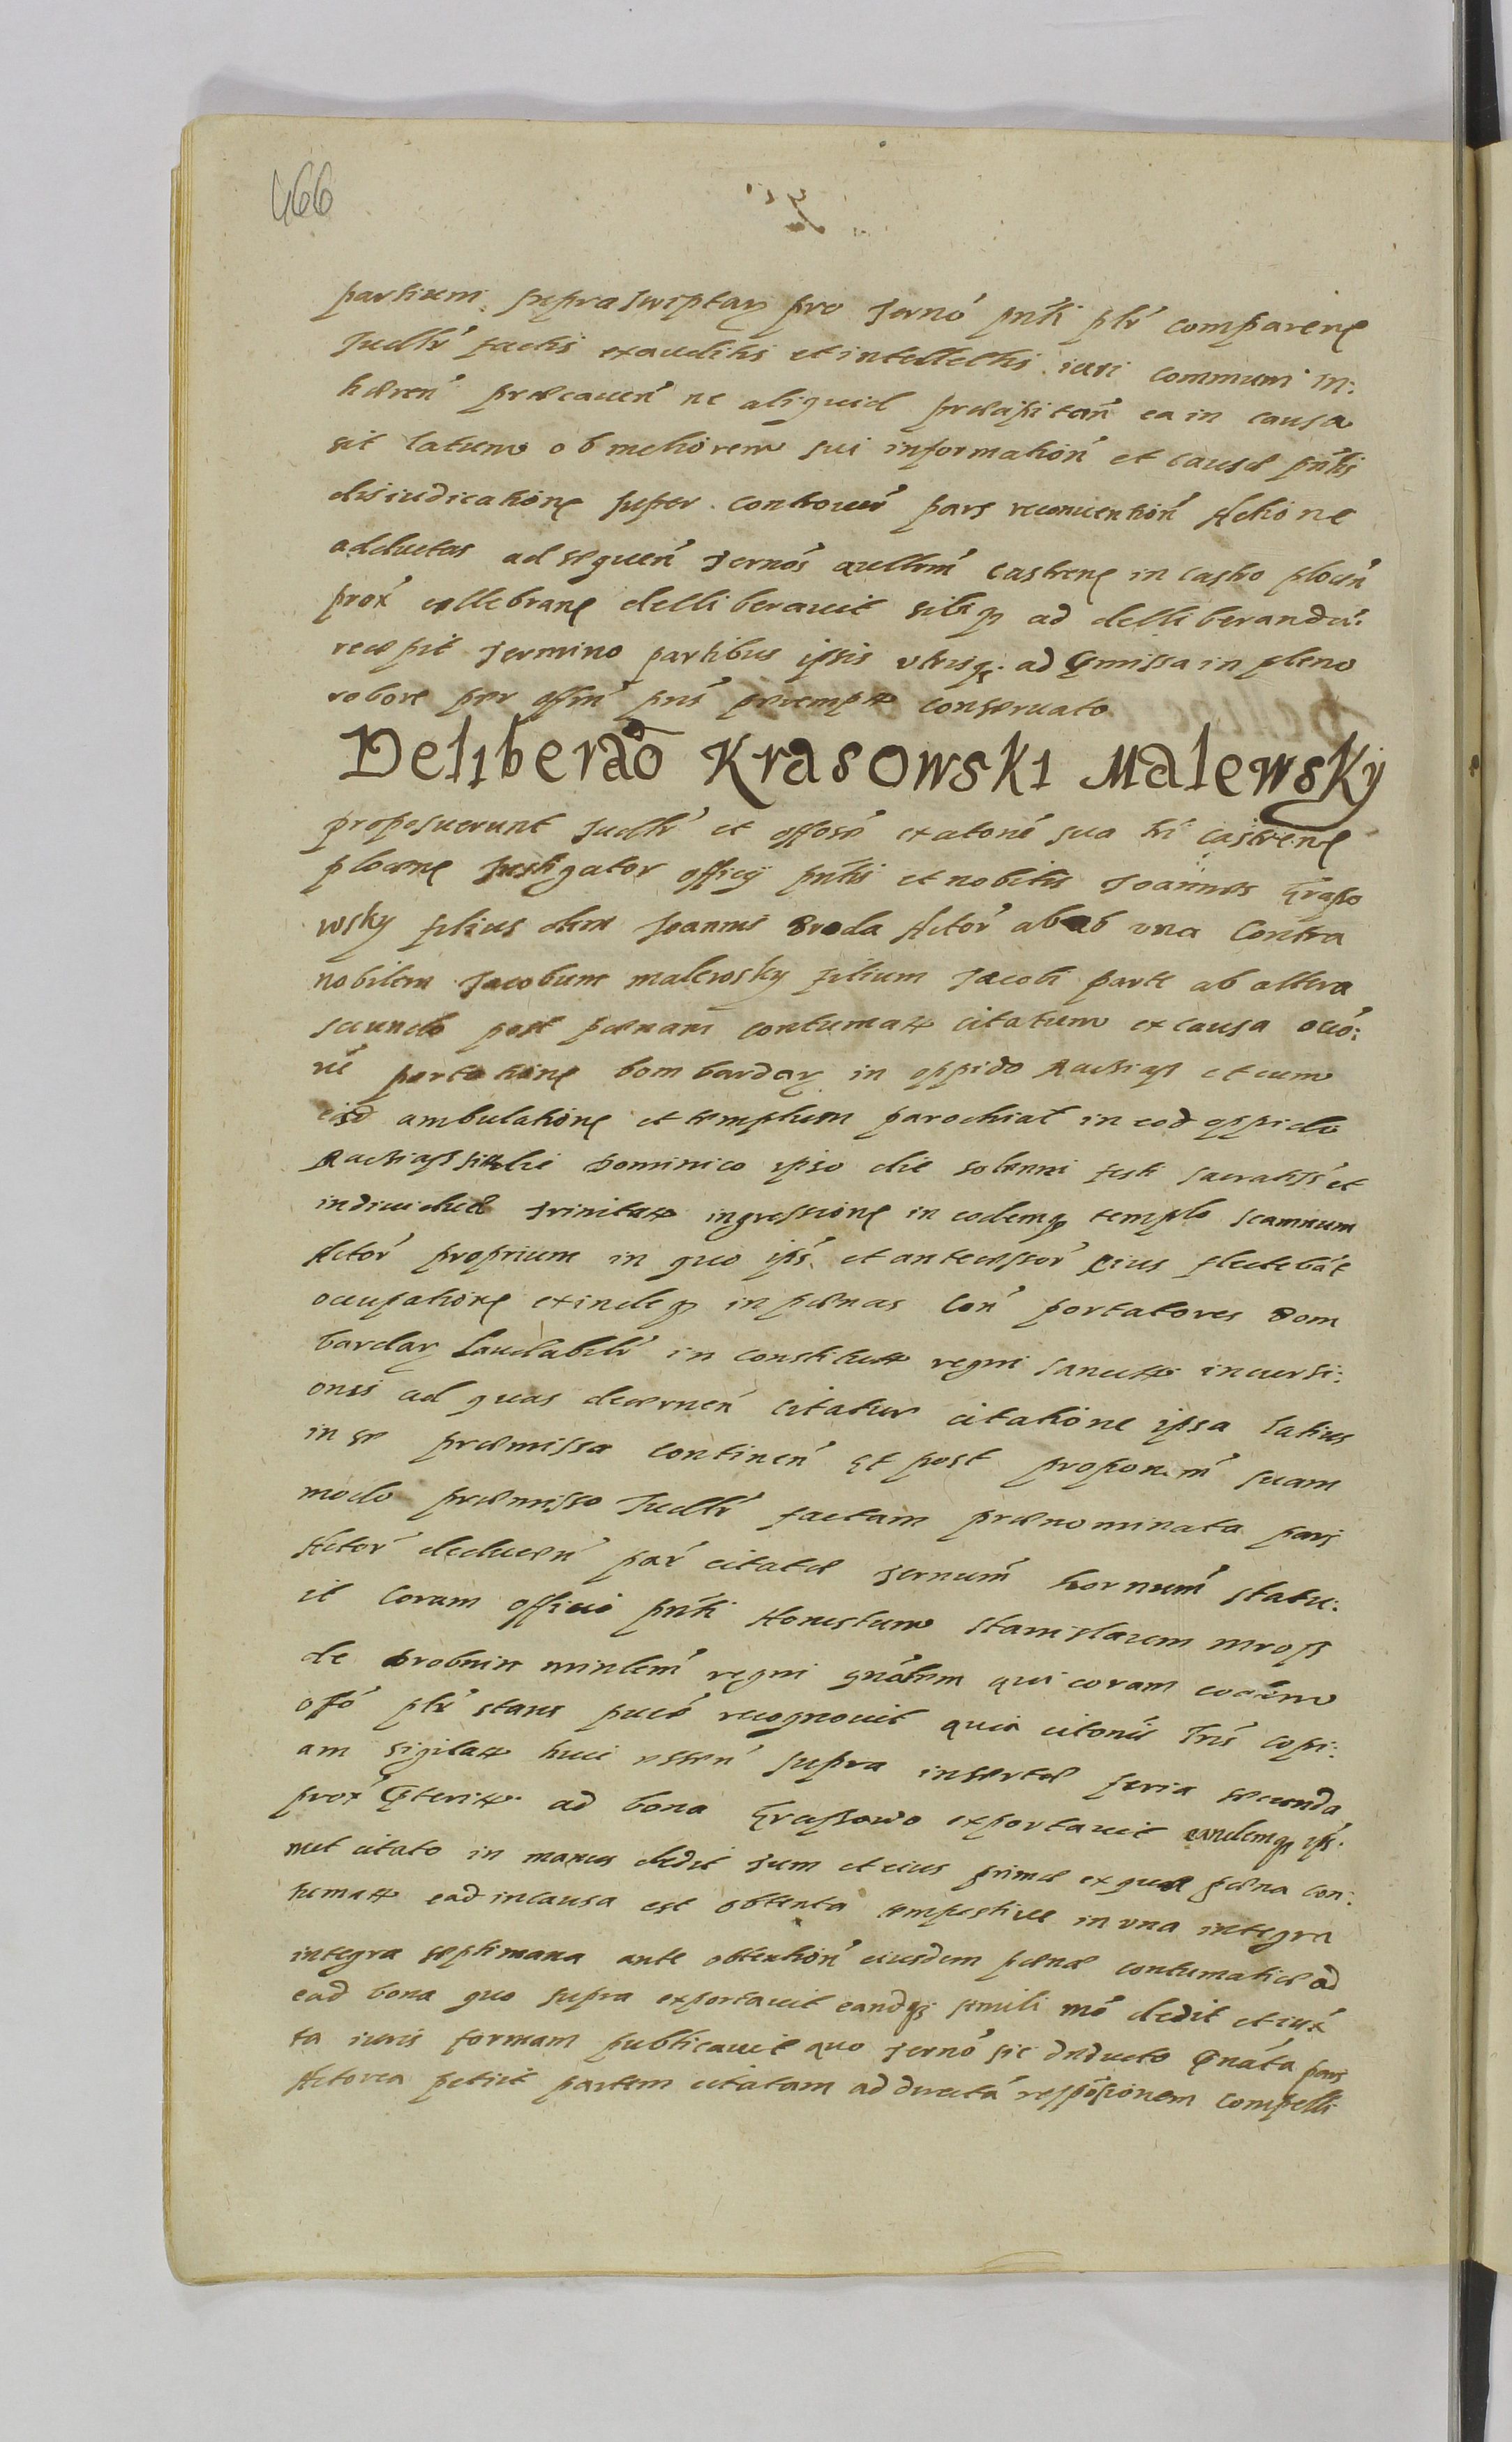 466
partium supra scriptar pro termō pn̄ti plr̄ comparen
Judlr̄ factis exauditis et intellectis iuri communi in:
hæren̄ præcauen̄ ne aliquid præcipitan̄ ea in causa
sit latum ob meliorem sui information̄ et causæ pn̄tis
disiudicatione super controuer̄ pars reconuention̄ Actione
adductas ad sequen̄ termōs castren in castro plocen̄
prox̄ cellebran delliberauit sibiq ad delliberandū
recepit termino partibus ipsis vtrisq ad p̄missa in pleno
robore per offm̄ pn̄s conseruato
Deliberaō Krasowski Malewsky
proposuerunt Judlr̄ et ex citatoē sua tr̄i castren
plocen Instigator officij pn̄tis et nobilis Joannes Craso
wsky filius olim Joannis Broda Actor̄ ab ab vna Contra
nobilem Jacobum malewsky filium Jacobi parte ab altera
secundo post pœnam contumatz citatum ex causa
portatione bombardar in oppido Raciass et cum
eisd ambulatione et templum parochial in eod oppido
Raciass die Dominico ipso die solenni festi sacratiss et
individuæ Trinitatz ingressione in eodemq templo scamnum
Actor̄ proprium in quo ips̄ et antecessor̄ eius flectebāt
occupatione exindeq in pœnas Con̄ portatores Bom
bardar laudabilr̄ in constitutz regni sancitz incursi:
onis ad quas decernen̄ citatur citatione ipsa latius
in se præmissa continen̄ Et post suam
modo præmisso Judlr̄ factam prænominata pars
Actor̄ deducen̄ par̄ citatæ termum̄ hornum̄ statu:
it Coram officio pn̄ti Honestum Stanislaum mross
de Drobnin minlem̄ regni gn̄alem qui coram eodem
offō plr̄ stans recognouit quia citonis lr̄is copi:
am sigilatz huic supra insertæ feria secunda
prox̄ p̄teritz ad bona Crassowo exportauit eandemq
met citato in manus dedit tum et eius primæ ex quæ pœna con:
tumatz ead in causa est obtenta tempestiue in vna integra
integra septimana ante obtention̄ eiusdem pœnæ contumatiæ ad
ead bona quo supra exportauit eandq simili mō dedit et iux̄
ta iuris formam publicauit quo termō sic deducto p̄nāta pars
Actorea petiit partem citatam ad directā respōsionem compelli